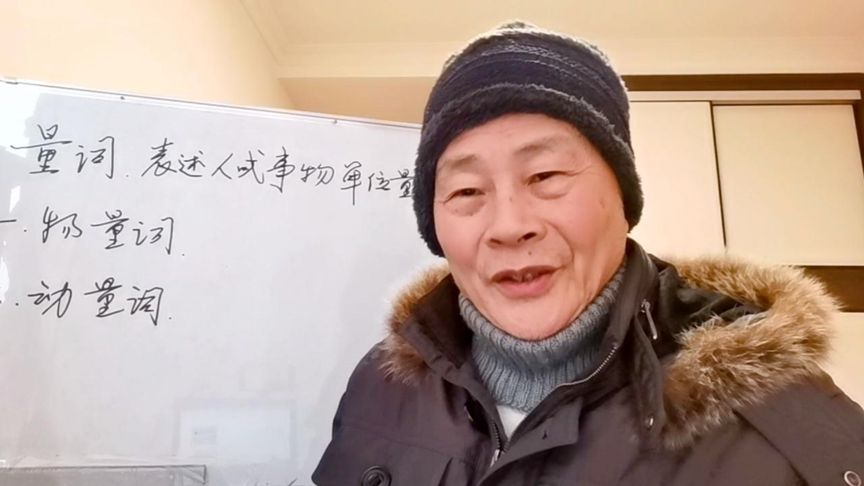 量词.表述人或事物单位量
一.物量词.
.动量词.